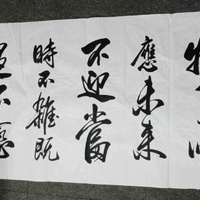 物
應未來
不迎當
時不雜既
過不戀